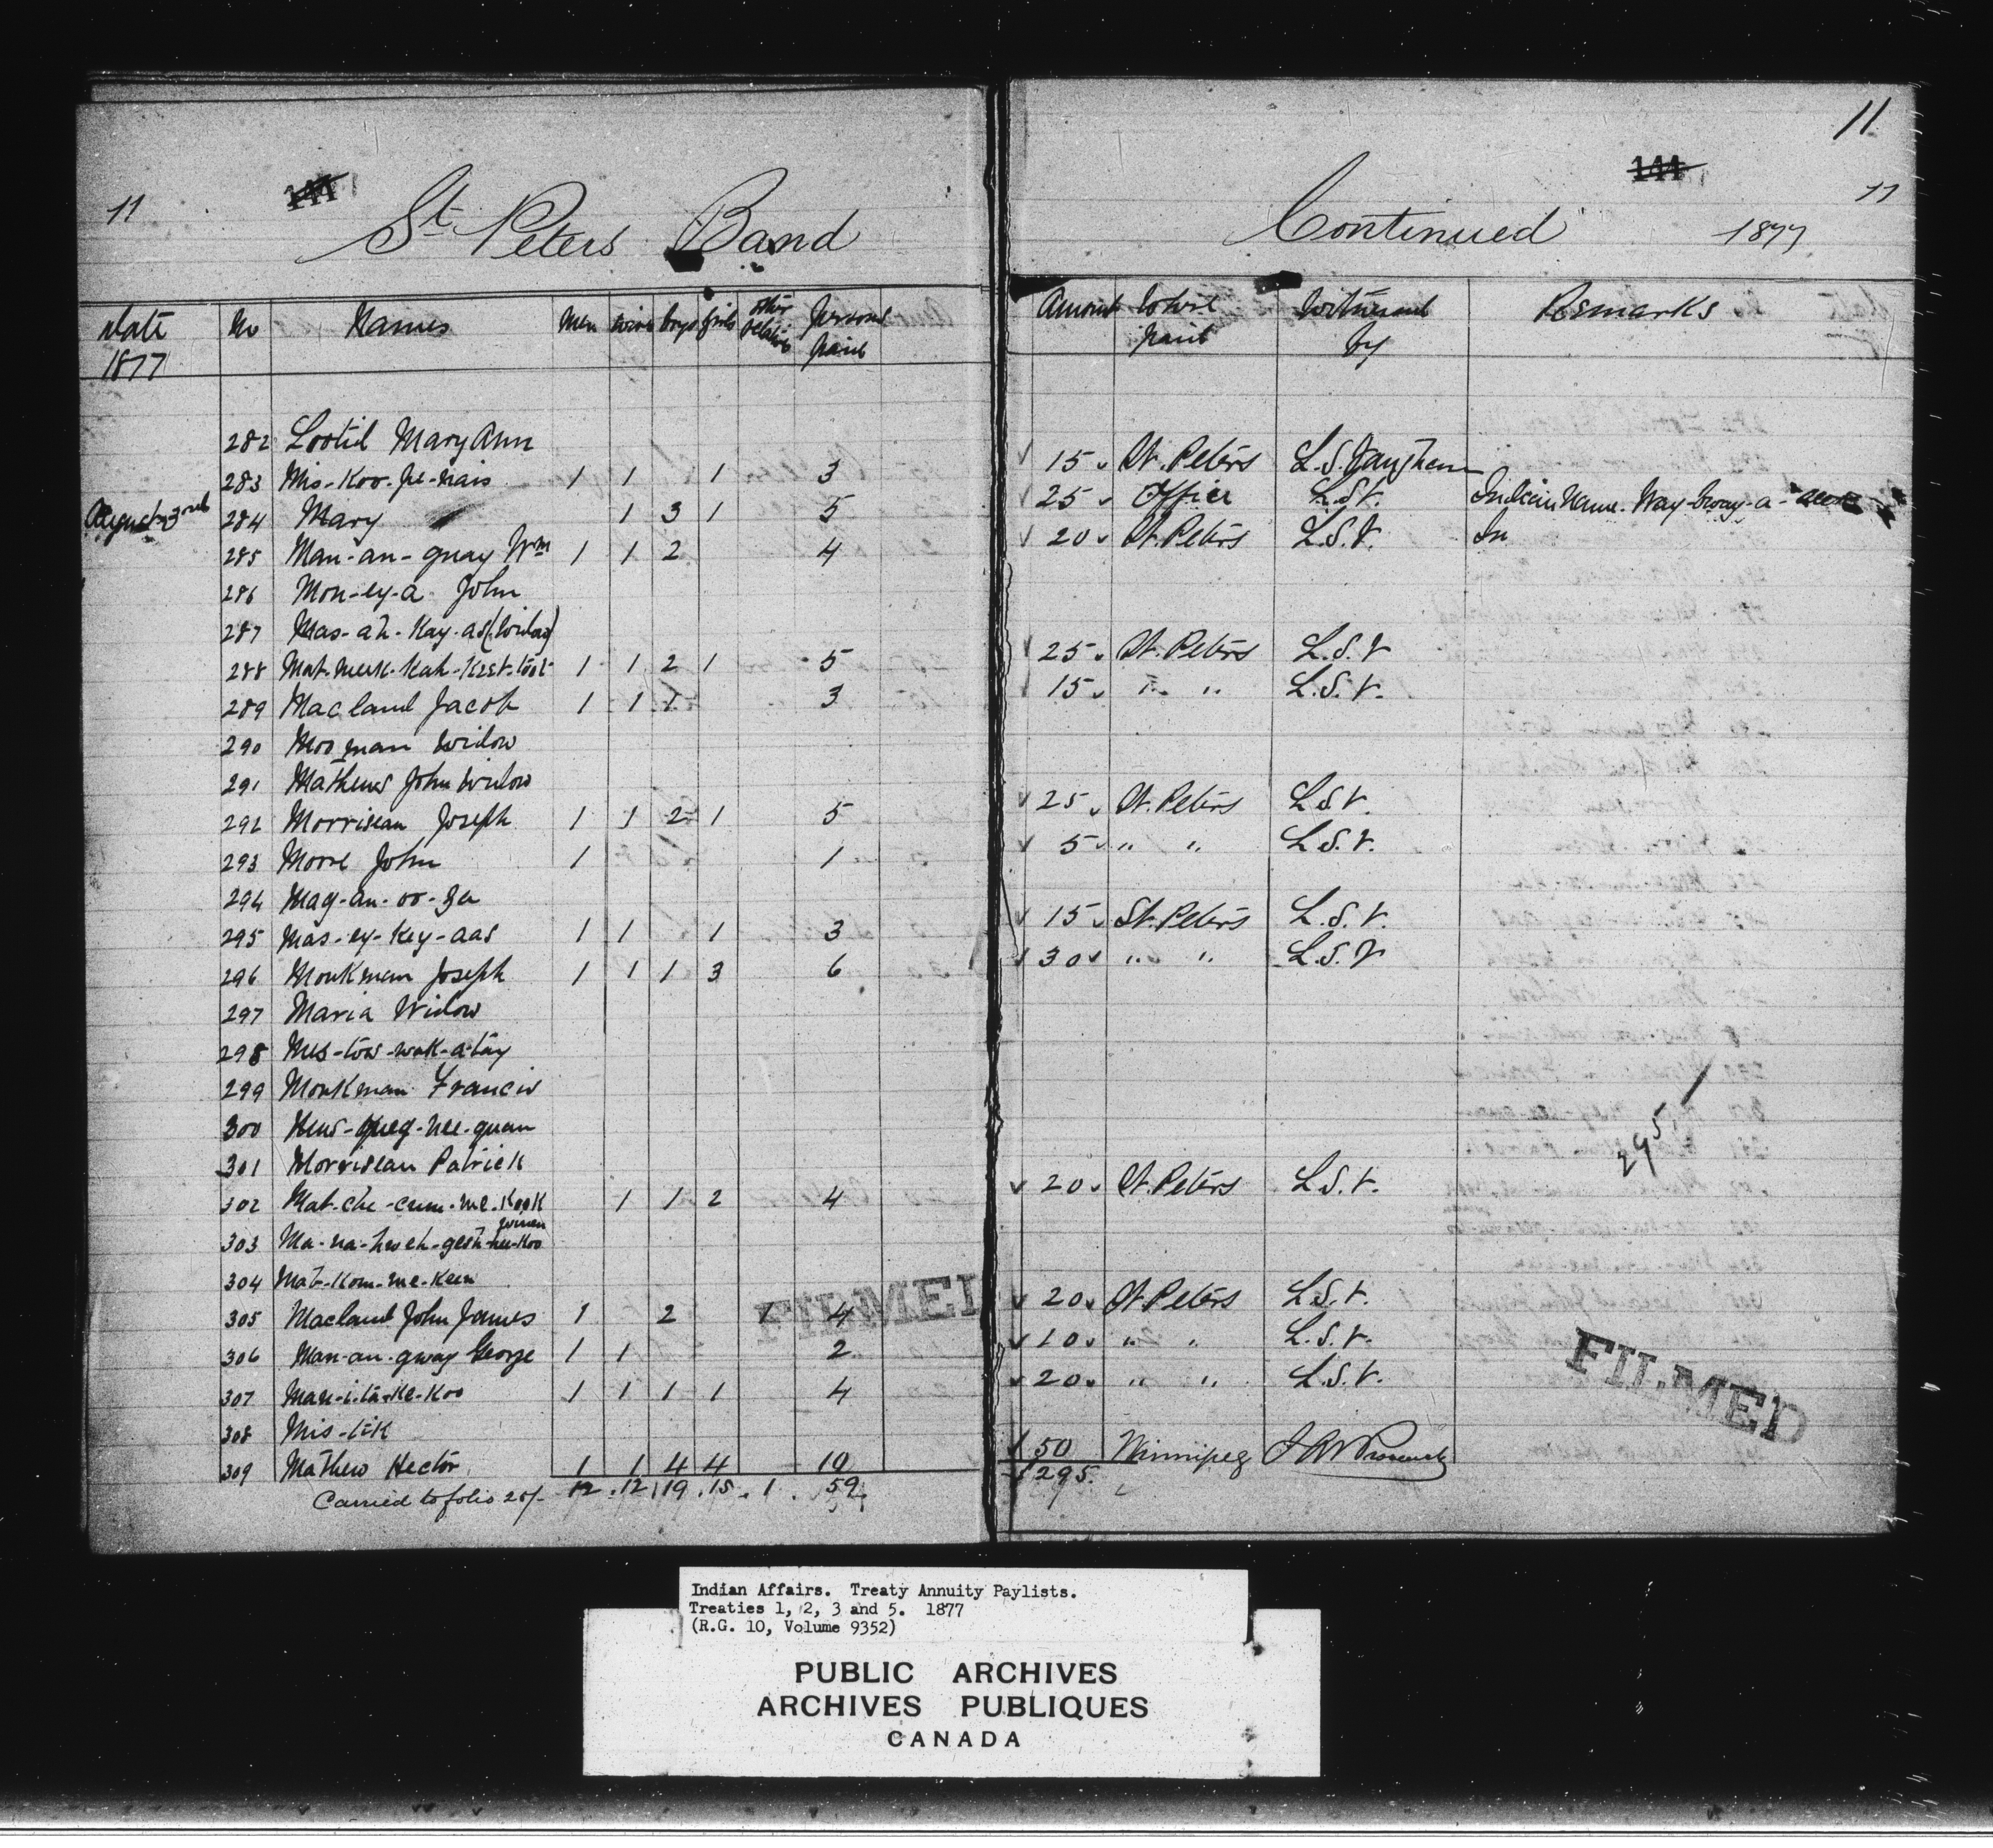 11
11
144
144
11
St. Peters Band
Continued 1877
Date 1877 No Names Men wives boys girls other relatives Persons paid
Amount Where paid Witnessed by Remarks
282 Mary Ann
283 Mis-Koo-pe-nais 1 1 1 3 15 St. Peters L.S. Vaughan
August 3rd 284 Mary 1 3 1 5 25 Office L.S.V. Indian Name. Way-bway-a-
285 Man-an-quay Wm 1 1 2 4 20 St. Peters L.S.V. In
286 Mon-ey-a John
287 Mas-ah-Kay-as (Widow)
288 1 1 2 1 5 25 St. Peters L.S.V
289 Macland Jacob 1 1 1 3 15 " " L.S.V.
290 Widow
291 Mathews John Widow
292 Morriseau Joseph 1 1 2 1 5 25 St. Peters L.S.V.
293 Moore John 1 1 5 " " L.S.V.
294
295 Mas-ey-Key-aas 1 1 1 3 15 St. Peters L.S.V.
296 Monkman Joseph 1 1 1 3 6 30 " " L.S.V
297 Maria Widow
298 Mes-tow-wak-a-tay
299 Monkman Francis
300
301 Morriseau Patrick
295
302 Mat-che-cum-me-Kook 1 1 2 4 20 St. Peters L.S.V.
303
304 Mat-Kom-me-Keen
305 Macland John James 1 2 1 4 20 St. Peters L.S.V.
FILMED
306 Man-an-gway George 1 1 2 10 " " L.S.V.
FILMED
307 Man-i-ta-Ke-Koo 1 1 1 1 4 20 " " L.S.V.
308 Mis-tik
309 Mathew Hector 1 1 4 4 10 50 Winnipeg
Carried to folio 12 12 19 15 1 59 $295.
Indian Affairs. Treaty Annuity Paylists.
Treaties 1, 2, 3 and 5. 1877
(R.G. 10, Volume 9352)
PUBLIC ARCHIVES
ARCHIVES PUBLIQUES
CANADA